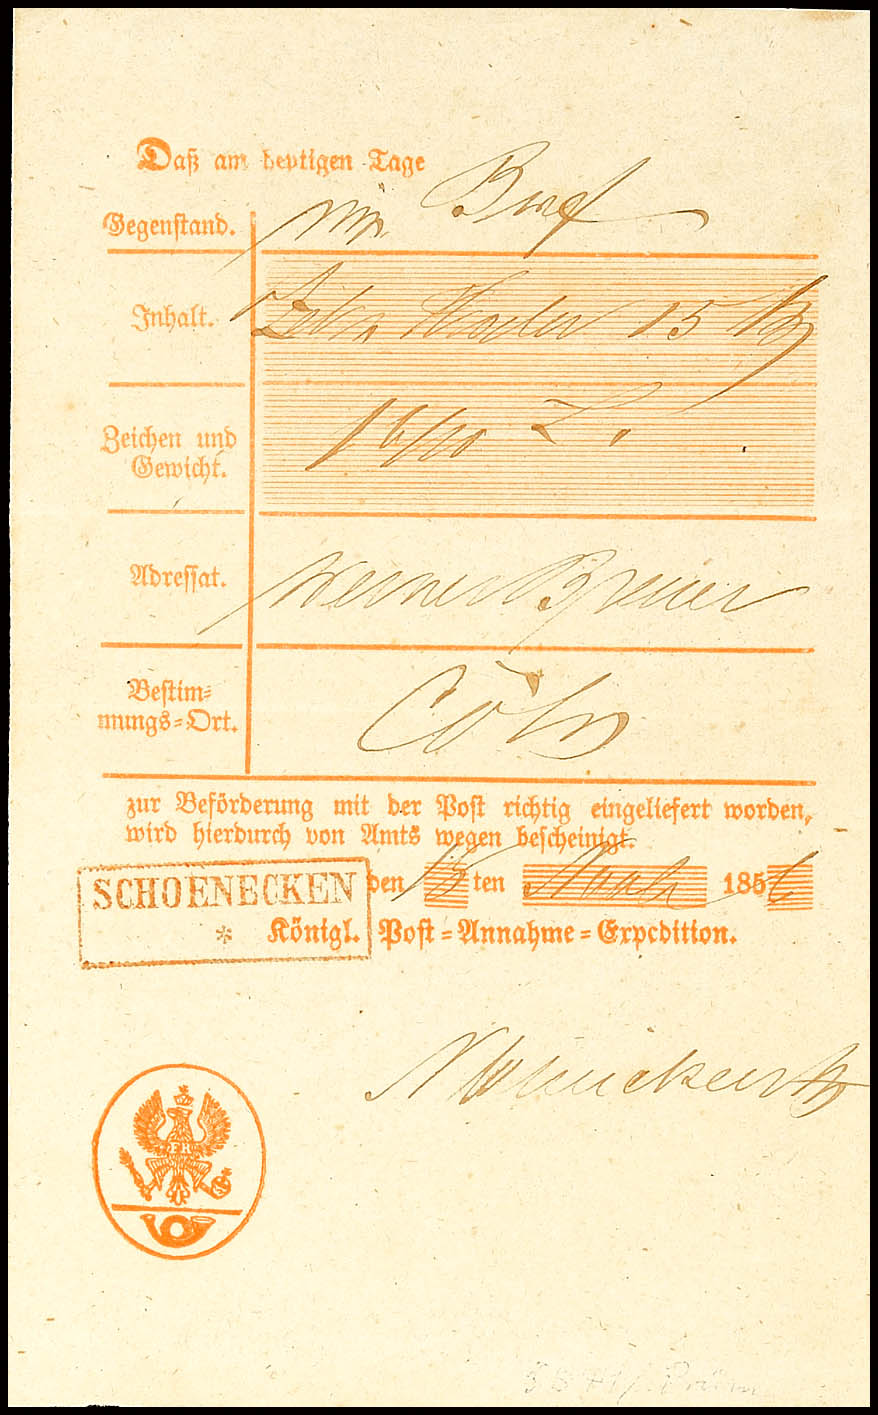 Daß am heutigen Tage
Gegenstand. ein Brief
Inhalt. Zehn Thaler 15
Zeichen und
Gewicht. 1 6/10 L.
Adressat. Werner Breuer
Bestim-
mungs-Ort. Cöln
zur Beförderung mit der Post richtig eingeliefert worden,
wird hierdurch von Amts wegen bescheinigt.
SCHOENECKEN den 15 ten 1856
* Königl. Post-Annahme-Expedition.
FR